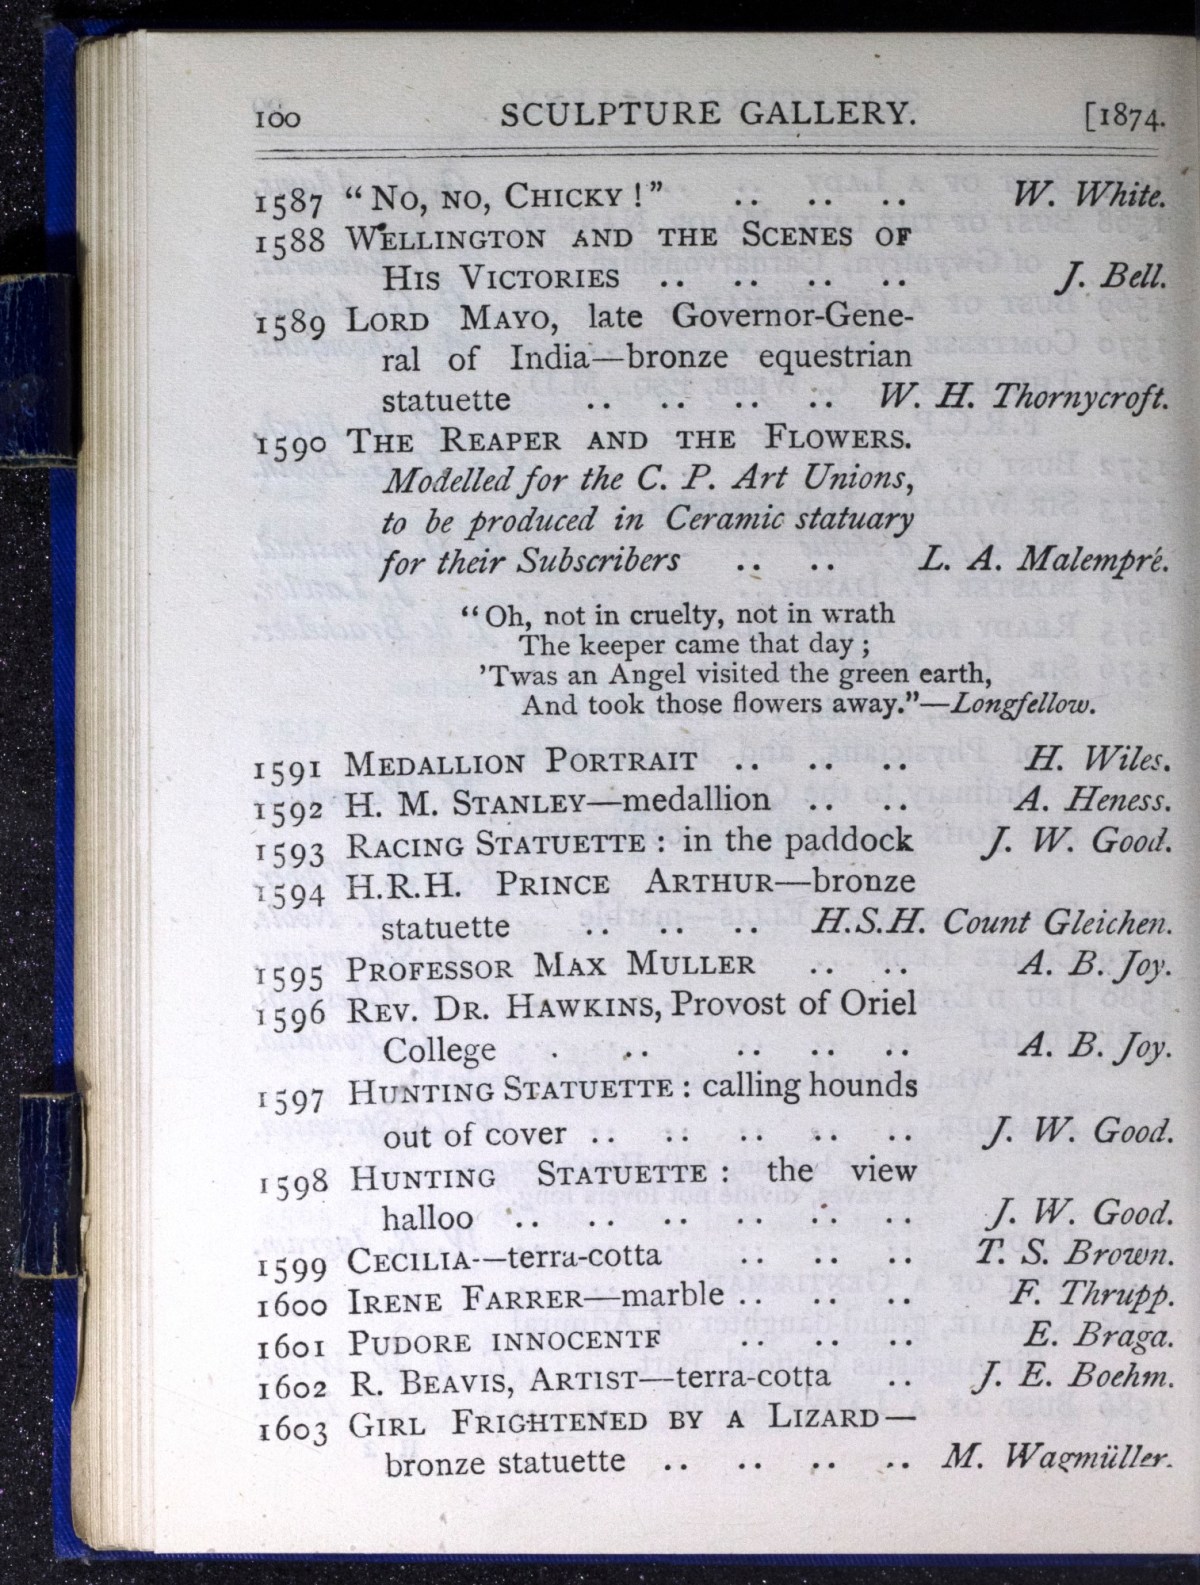 100 SCULPTURE GALLERY. [1874.
1587 “No, no, Chicky!” .. .. .. W. White.
1588 Wellington and the Scenes of
His Victories .. .. .. .. J. Bell.
1589 Lord Mayo, late Governor-Gene-
ral of India—bronze equestrian
statuette .. .. .. .. W. H. Thornycroft.
1590 The Reaper and the Flowers.
Modelled for the C. P. Art Unions,
to be produced in Ceramic statuary
for their Subscribers .. .. L. A. Malempré.
“Oh, not in cruelty, not in wrath
The keeper came that day;
’Twas an Angel visited the green earth,
And took those flowers away.”—Longfellow.
1591 Medallion Portrait .. .. .. H. Wiles.
1592 H. M. Stanley—medallion .. .. A. Heness.
1593 Racing Statuette: in the paddock J. W. Good.
1594 H.R.H. Prince Arthur—bronze
statuette .. .. .. H.S.H. Count Gleichen.
1595 Professor Max Muller .. .. A. B. Joy.
1596 Rev. Dr. Hawkins, Provost of Oriel
College . .. .. .. .. A. B. Joy.
1597 Hunting Statuette: calling hounds
out of cover .. .. .. .. .. J. W. Good.
1598 Hunting Statuette: the view
halloo .. .. .. .. .. .. J. W. Good.
1599 Cecilia—terra-cotta .. .. .. T. S. Brown.
1600 Irene Farrer—marble .. .. .. F. Thrupp.
1601 Pudore innocente .. .. .. E. Braga.
1602 R. Beavis, Artist—terra-cotta .. J. E. Boehm.
1603 Girl Frightened by a Lizard—
bronze statuette .. .. .. .. M. Wagmüller.